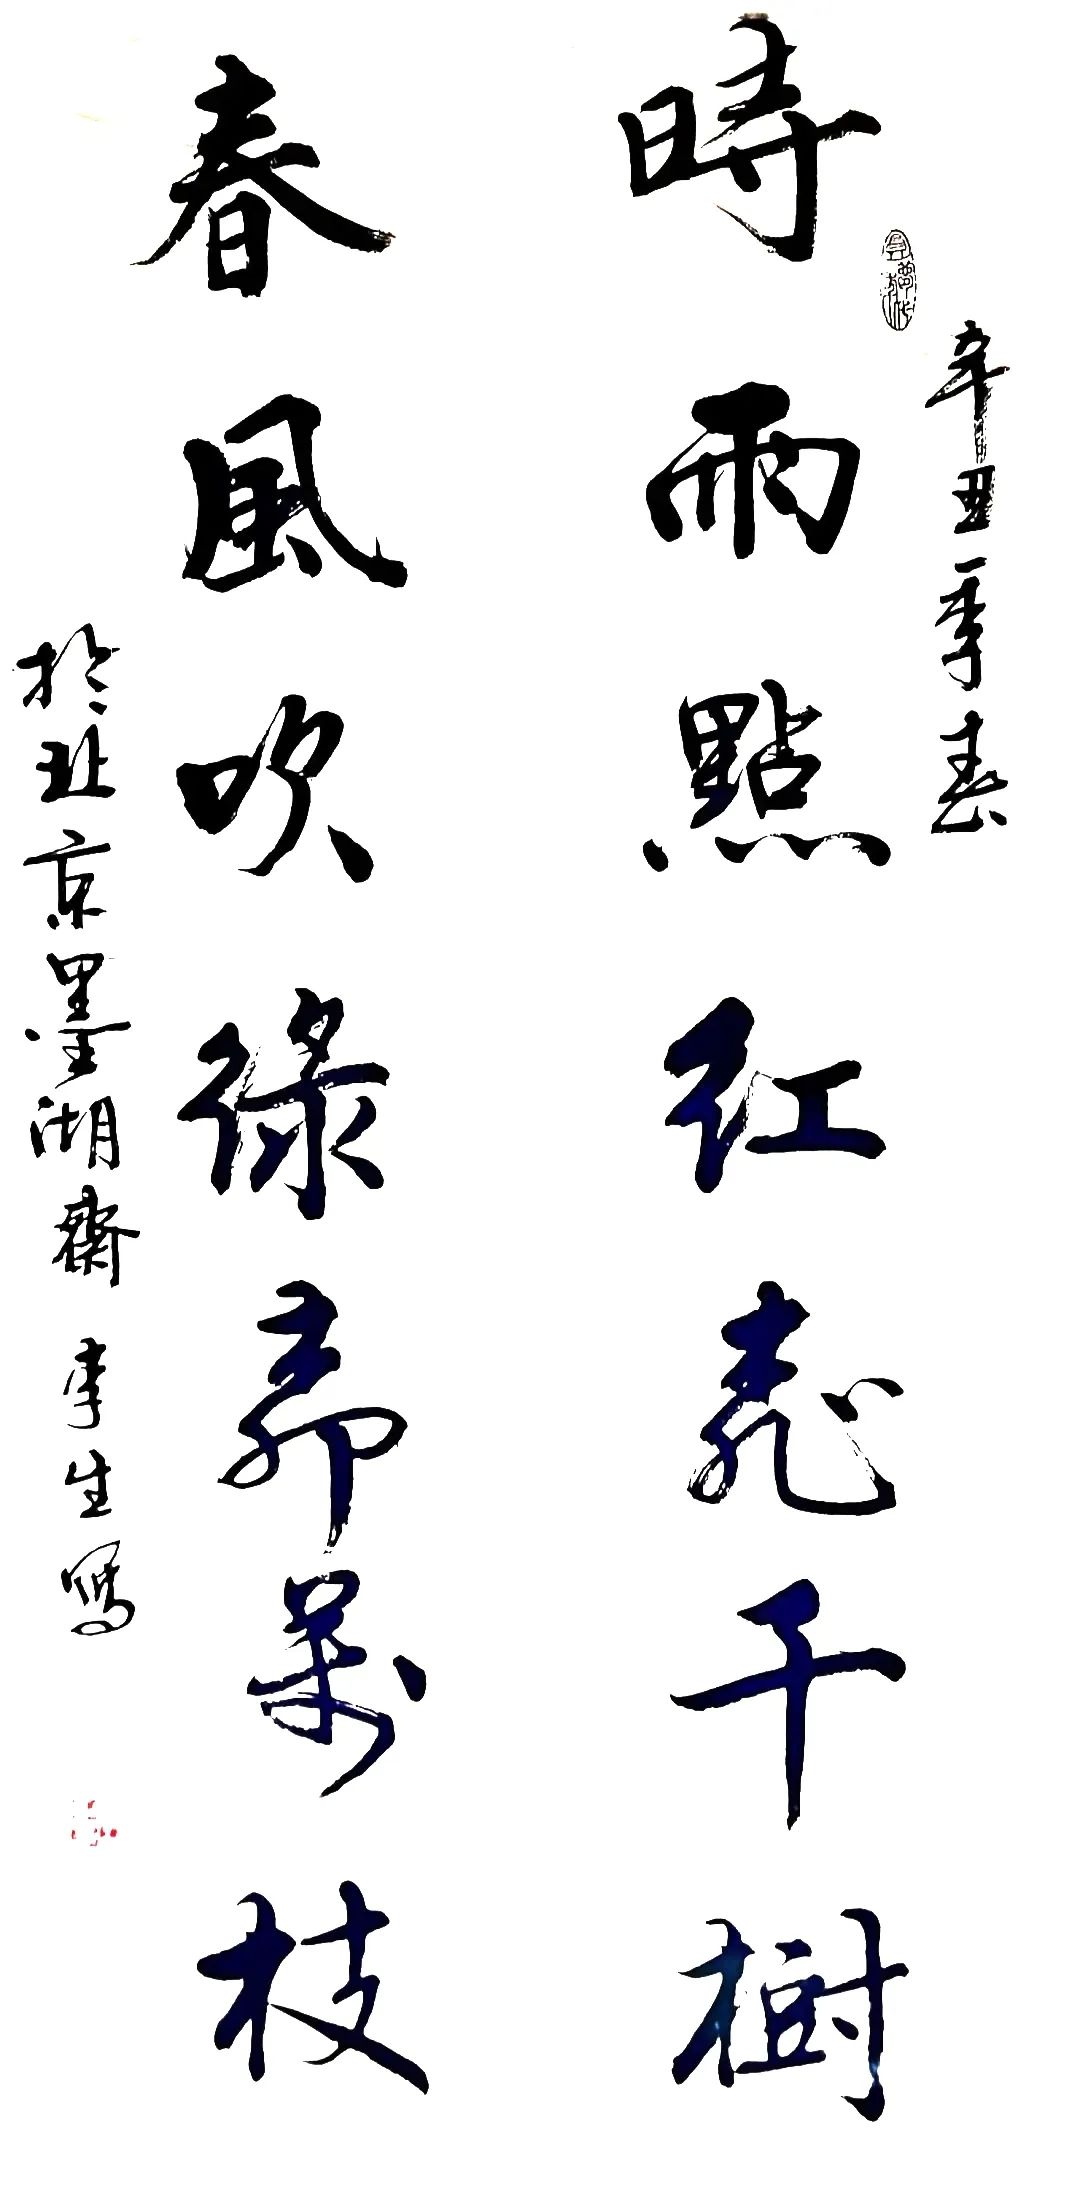 辛丑季春
時雨點紅桃千樹
春風吹綠柳萬枝
於北京墨湖齋 李生寫